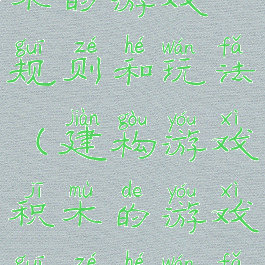 木的游戏
guī zé hé wán fǎ
规则和玩法
jiàn gòu yóu xì
（建构游戏
jī mù de yóu xì
积木的游戏
guī zé hé wán fǎ